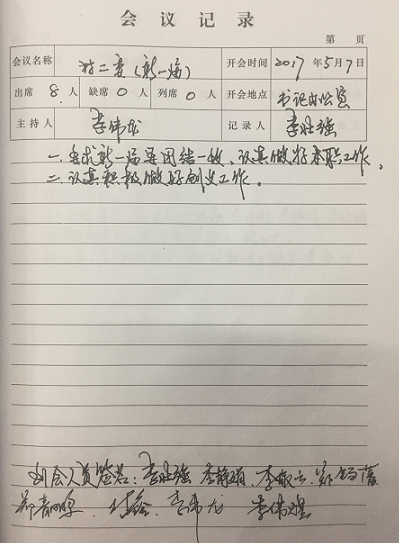 会议记录
第 页
会议名称 村二委(新一届) 开会时间 2017年5月7日
出席 8人 缺席 0人 列席 0人 开会地点 书记办公室
主持人 李伟龙 记录人 李旺强
一.要求新一届要团结一致,认真做好本职工作。
二.认真积极做好创文工作。
到会人员签名:李旺强 李静娟、李敏云、
李伟龙 李伟煌